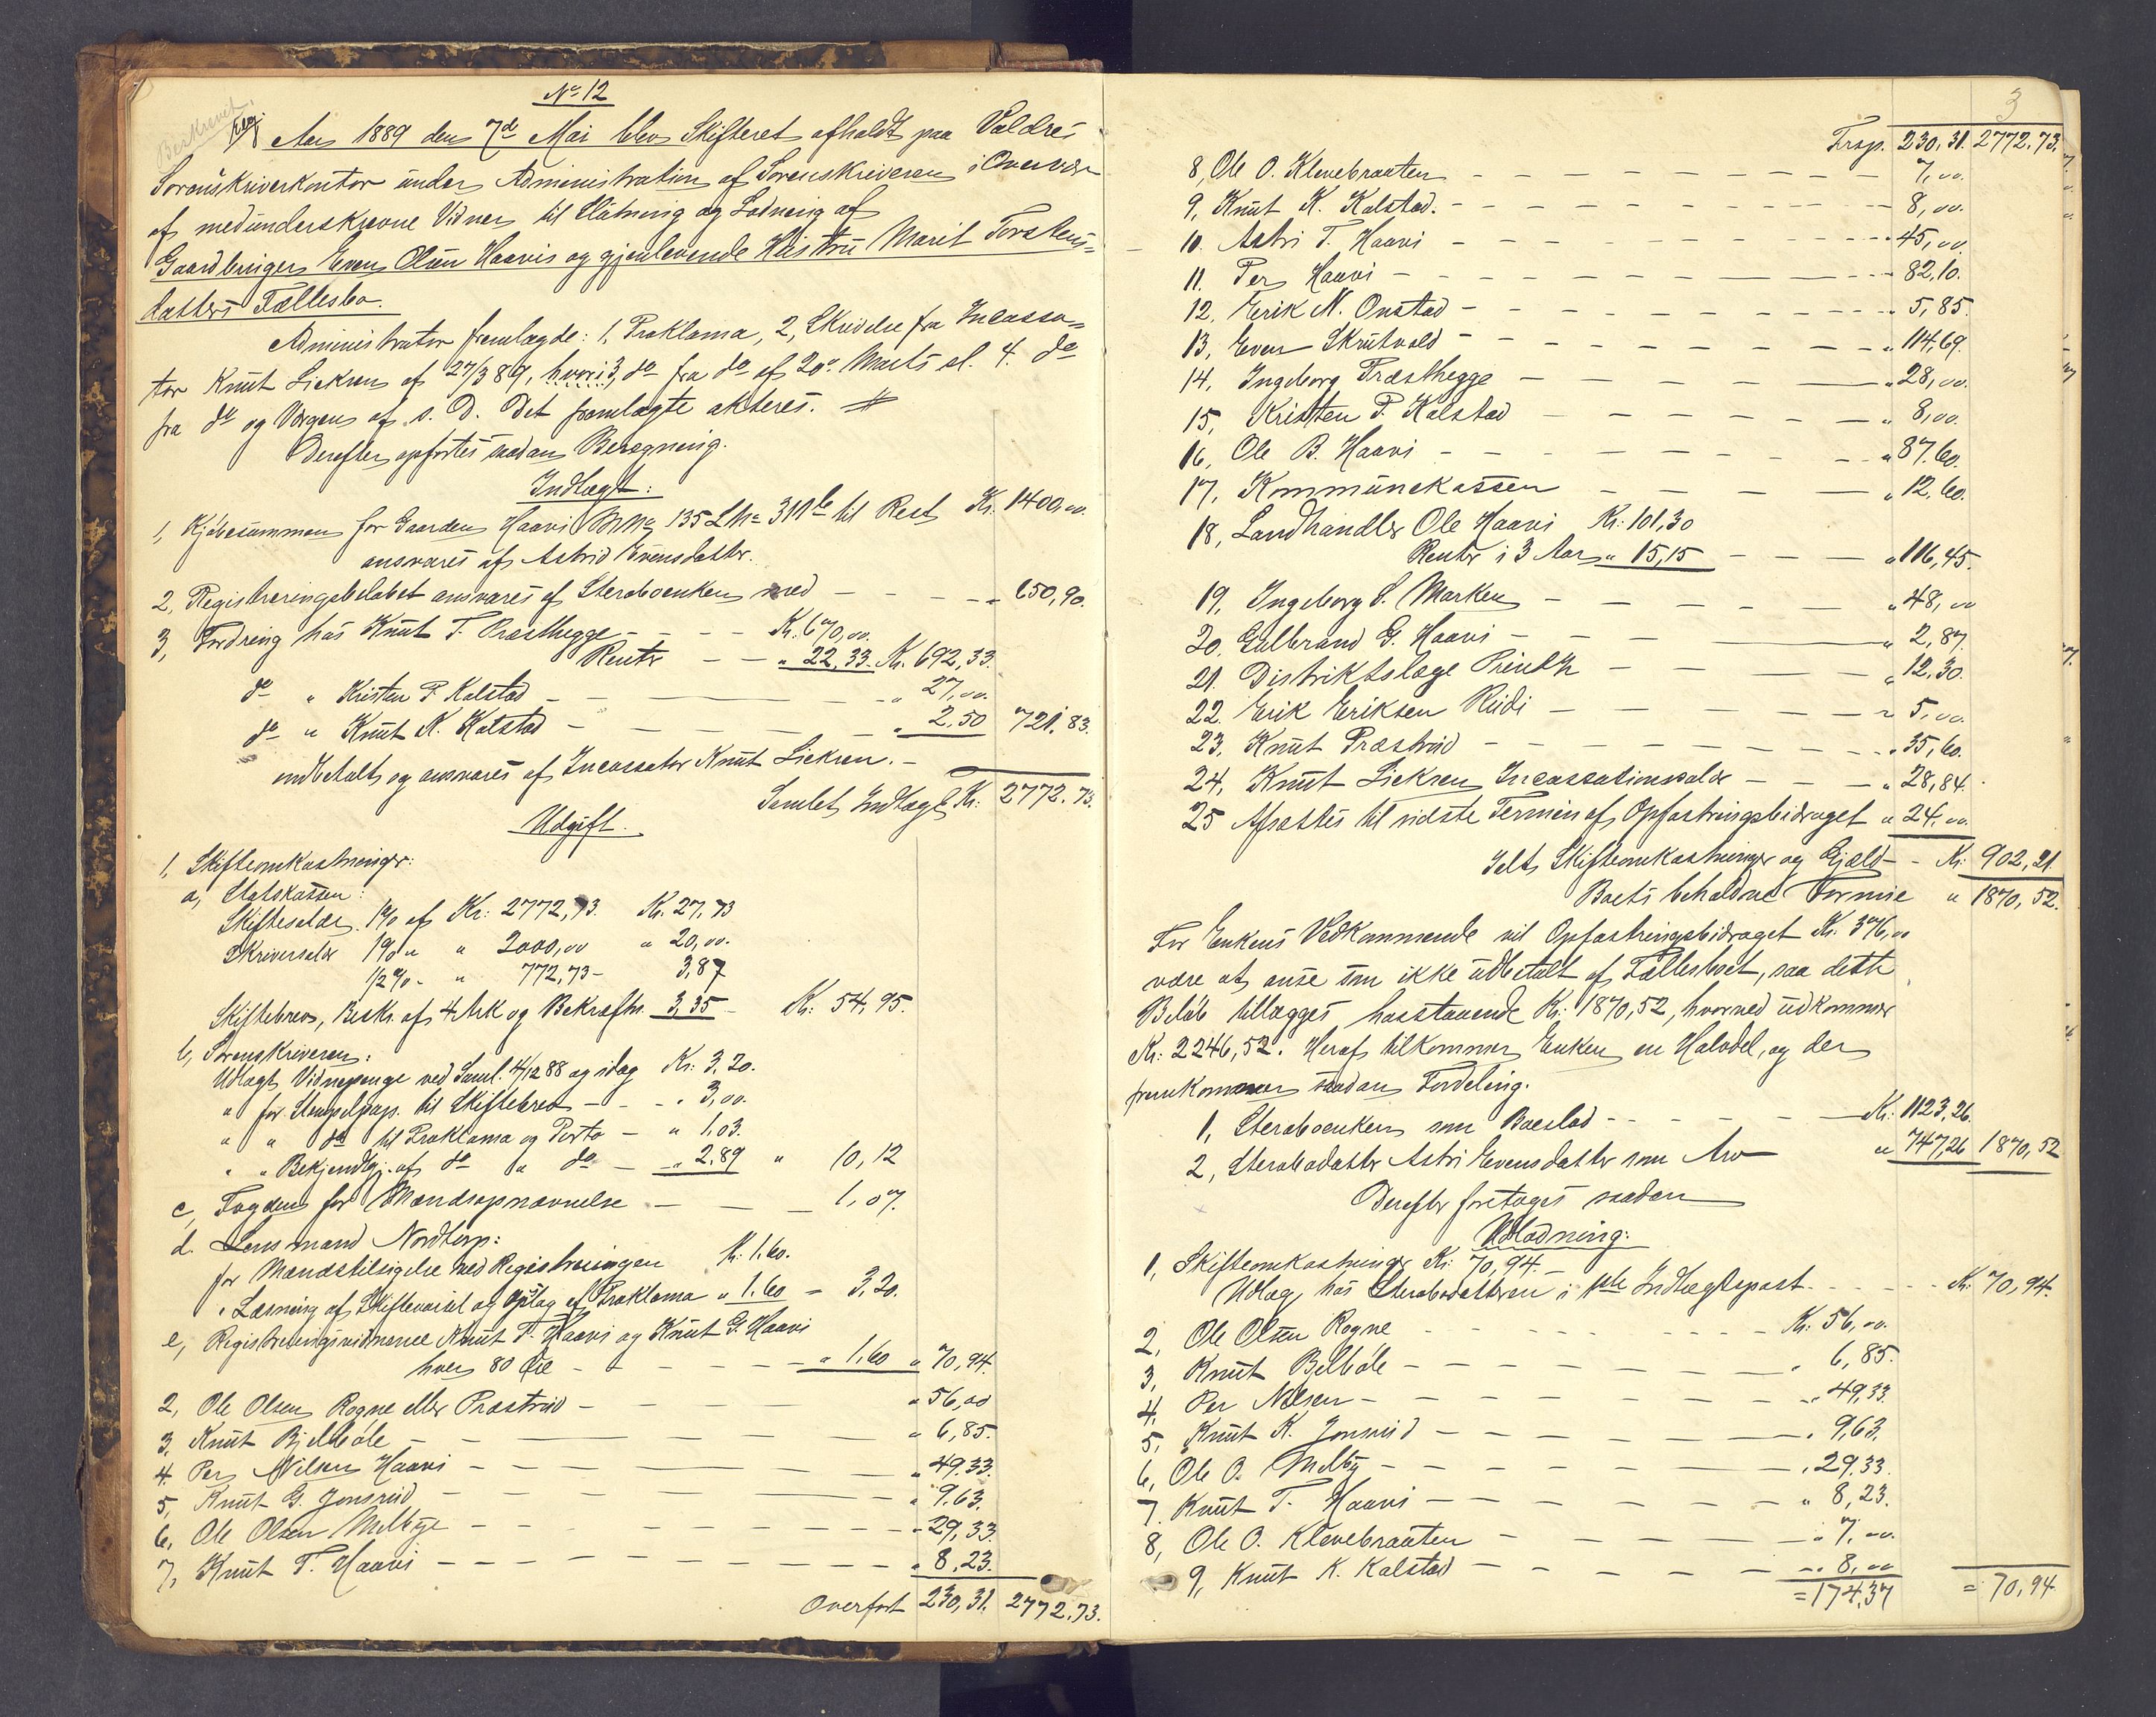 No 12
Beskrevet.
Reg.
Aar 1889 den 7d Mai blev Skifteret afholdt paa Valdres
Sorenskriverkontor under Administration af Sorenskriveren i Overvær
af medunderskrevne Vidner til Slutning og Lodning af
Gaardbruger Even Olsen Haavis og gjenlevende Hustru Marit Torstens-
datters Fællesbo.
Administrator fremlagde: 1, Proklama, 2, Skrivelse fra Incassa-
tor Knut Liekren af 27/3 89, hvori 3, do fra do af 20de Marts d. 4. do
fra do og Vergen af s. D. Det fremlagte akteres. #
Derefter opførtes saadan Beregning.
Indtægt:
1, Kjøbesummen for Gaarden Haavi M No 135 L No 311b til Rest Kr. 1400,00
ansvares af Astrid Evensdatter.
2, Registreringsbeløbet ansvares af Sterboenken med - - - - 650,90.
3, Fordring hos Knut T. Præsthegge - - - - Kr. 670,00.
Renter - - " 22,33. Kr. 692,33.
do " Kristen P. Kalstad - - - " 27,00.
do " Knut K. Kalstad - - - " 2.50 721.83.
indbetalt og ansvares af Incassator Knut Liekren. -
Samlet Indtægt Kr: 2772.73.
Udgift.
1, Skifteomkostninger:
a, Statskassen:
Skiftesalær 1% af Kr: 2772,73. Kr. 27,73
Skriversalær 1% " " 2000,00 " 20,00.
1/2 % - " 772,73 - 3,87
Skiftebrev, Beskr. af 4 Ark og Bekræftn. 3,35 - Kr: 54,95.
b, Sorenskriveren:
Udlagt Vidnepenge ved Saml. 4/12 88 og idag Kr: 3,20.
" for Stempelpap. til Skiftebrev - - - " 3,00.
" " do til Proklama og Porto - " 1,03.
" " Bekjendtgj. af do " do - " 2,89 " 10,12
c, Fogden for Mændsopnævnelse - - - 1,07.
d. Lensmand Nordtorp:
for Mændstilsigelse ved Registreringen Kr. 1.60.
" Læsning af Skiftevarsel og Opslag af Proklama " 1.60 - 3,20.
e, Registreringsvidnerne Knut T. Haavi og Knut G. Haavi
hver 80 Øre - - - - - - " 1,60 " 70,94.
2, Ole Olsen Rogne eller Præstrud - - - - - " 56,00
3, Knut Bjelbøle - - - - - " 6,85.
4. Per Nilsen Haavi - - - - - " 49.33.
5, Knut G. Jonsrud - - - - - " 9,63.
6, Ole Olsen Melbye - - - - - - 29,33.
7, Knut T. Haavi - - - - - - - - " 8,23.
Overført 230,31. 2772.73.
3
Trsp. 230,31. 2772.73.
8, Ole O. Klevebraaten - - - - - - - - 7,00.
9, Knut K. Kalstad. - - - - - - - - 8,00.
10. Astri T. Haavi - - - - - - - - 45,00
11. Per Haavi - - - - - - - - 82,10.
12, Erik N. Onstad - - - - - - - - 5,85.
13, Even Skrutvold - - - - - - - - " 114,69.
14, Ingeborg Præsthegge - - - - - " 28,00.
15, Kristen P. Kalstad - - - - - " 8,00.
16, Ole B. Haavi - - - - - - - - " 87.60.
17, Kommunekassen - - - - " 12,60.
18, Landhandler Ole Haavi Kr: 101,30
Renter i 3 Aar " 15,15 - - - " 116,45.
19, Ingeborg S. Marken - - - - - " 48,00
20. Gulbrand G. Haavi - - - - " 2,87.
21. Distriktslæge Printz - - - - " 12,30.
22. Erik Eriksen Rudi - - - - - " 5,00.
23. Knut Præstrud - - - - - - - - " 35,60.
24, Knut Liekren Incassationssalær - - - " 28,84.
25 Afsættes til sidste Termin af Opfostringsbidraget " 24,00.
Ialt Skifteomkostninger og Gjæld - - Kr: 902,21.
Boets beholdne Formue " 1870,52.
For Enkens Vedkommende vil Opfostringsbidraget Kr. 376,00
være at anse som ikke udbetalt af Fællesboet, saa dette
Beløb tillægges hosstaaende Kr: 1870,52, hvorved udkommer
Kr: 2246,52. Heraf tilkommer Enken en Halvdel, og der
fremkommer saadan Fordeling.
1, Sterboenken som Boeslod - - - - - - Kr: 1123,26.
2, Sterbodatter Astri Evensdatter som Arv " 747,26 1870,52
Derefter foretoges saadan
Udlodning:
1, Skifteomkostninger Kr: 70,94. -
Udlæg hos Sterbodatteren i 1ste Indtægtspost. - - - - Kr: 70,94.
2, Ole Olsen Rogne - - - - - - - Kr: 56,00.
3, Knut Bjelbøle - - - - - - " 6,85.
4, Per Nilsen - - - - - - - - " 49,33.
5, Knut K. Jonsrud - - - - - - " 9,63.
6, Ole O. Melby - - - - - - - " 29.33.
7. Knut T. Haavi - - - - - - - - " 8,23.
8, Ole O. Klevebraaten - - - - - " 7,00.
9, Knut K. Kalstad - - - - - - " 8,00
= 174,37 = 70,94